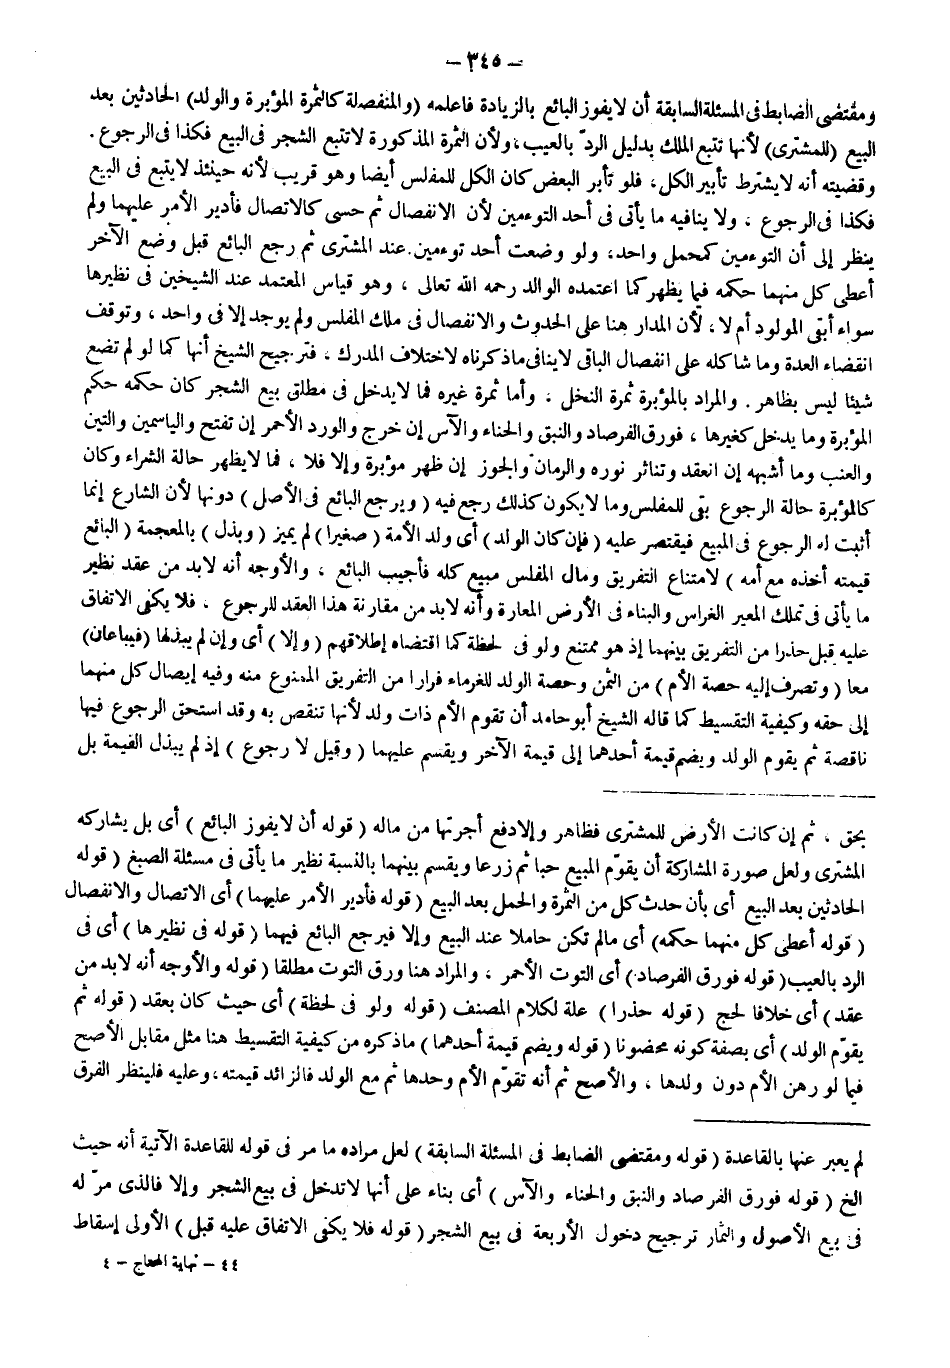 - ٣٤٥ -
ومقتضى الضابط فى المسئلة السابقة أن لايفوز البائع بالزيادة فاعلمه (والمنفصلة كالثمرة المؤبرة والولد) الحادثين بعد
البيع (للمشترى) لأنها تتبع الملك بدليل الردّ بالعيب، ولأن الثمرة المذكورة لاتتبع الشجر فى البيع فكذا فى الرجوع .
وقضيته أنه لايشترط تأبير الكل ، فلو تأبر البعض كان الكل للمفلس أيضا وهو قريب لأنه حينئذ لايتبع فى البيع
فكذا فى الرجوع ، ولا ينافيه ما يأتى فى أحد التوءمين لأن الانفصال ثم حسى كالاتصال فأدير الأمر عليهما ولم
ينظر إلى أن التوءمين كمحمل واحد، ولو وضعت أحد توءمين عند المشترى ثم رجع البائع قبل وضع الآخر
أعطى كل منهما حكمه فيما يظهر كما اعتمده الوالد رحمه الله تعالى ، وهو قياس المعتمد عند الشيخين فى نظيرها
سواء أبقى المولود أم لا ، لأن المدار هنا على الحدوث والانفصال فى ملك المفلس ولم يوجد إلا فى واحد ، وتوقف
انقضاء العدة وما شاكله على انفصال الباقى لاينافى ماذكرناه لاختلاف المدرك ، فترجيح الشيخ أنها كما لو لم تضع
شيئا ليس بظاهر . والمراد بالمؤبرة ثمرة النخل ، وأما ثمرة غيره فما لايدخل فى مطلق بيع الشجر كان حكمه حكم
المؤبرة وما يدخل كغيرها ، فورق الفرصاد والنبق والحناء والآس إن خرج والورد الأحمر إن تفتح والياسمين والتين
والعنب وما أشبهه إن انعقد وتناثر نوره والرمان والجوز إن ظهر مؤبرة وإلا فلا ، فما لايظهر حالة الشراء وكان
كالمؤبرة حالة الرجوع بقى للمفلس وما لايكون كذلك رجع فيه ( ويرجع البائع فى الأصل ) دونها لأن الشارع إنما
أثبت له الرجوع فى المبيع فيقتصر عليه ( فإن كان الولد ) أى ولد الأمة ( صغيرا ) لم يميز ( وبذل ) بالمعجمة ( البائع
قيمته أخذه مع أمه ) لامتناع التفريق ومال المفلس مبيع كله فأجيب البائع ، والأوجه أنه لابد من عقد نظير
ما يأتى فى تملك المعير الغراس والبناء فى الأرض المعارة وأنه لابد من مقارنة هذا العقد للرجوع ، فلا يكفى الاتفاق
عليه قبل حذرا من التفريق بينهما إذ هو ممتنع ولو فى لحظة كما اقتضاه إطلاقهم ( وإلا ) أى وإن لم يبذلها (فيباعان)
معا ( وتصرف إليه حصة الأم ) من الثمن وحصة الولد للغرماء فرارا من التفريق الممنوع منه وفيه إيصال كل منهما
إلى حقه وكيفية التقسيط كما قاله الشيخ أبو حامد أن تقوم الأم ذات ولد لأنها تنقص به وقد استحق الرجوع فيها
ناقصة ثم يقوم الولد ويضم قيمة أحدهما إلى قيمة الآخر ويقسم عليهما ( وقيل لا رجوع ) إذ لم يبذل القيمة بل
بحق ، ثم إن كانت الأرض للمشترى فظاهر وإلا دفع أجرتها من ماله ( قوله أن لايفوز البائع ) أى بل يشاركه
المشترى ولعل صورة المشاركة أن يقوّم المبيع حبا ثم زرعا ويقسم بينهما بالنسبة نظير ما يأتى فى مسئلة الصبغ ( قوله
الحادثين بعد البيع أى بأن حدث كل من الثمرة والحمل بعد البيع ( قوله فأدير الأمر عليهما ) أى الاتصال والانفصال
( قوله أعطى كل منهما حكمه) أى مالم تكن حاملا عند البيع وإلا فيرجع البائع فيهما ( قوله فى نظيرها ) أى فى
الرد بالعيب ( قوله فورق الفرصاد ) أى التوت الأحمر ، والمراد هنا ورق التوت مطلقا ( قوله والأوجه أنه لابد من
عقد ) أى خلافا لحج ( قوله حذرا ) علة لكلام المصنف ( قوله ولو فى لحظة ) أى حيث كان بعقد ( قوله ثم
يقوّم الولد ) أى بصفة كونه محضونا ( قوله ويضم قيمة أحدهما ) ماذكره من كيفية التقسيط هنا مثل مقابل الأصح
فيما لو رهن الأم دون ولدها ، والأصح ثم أنه تقوّم الأم وحدها ثم مع الولد فالزائد قيمته ، وعليه فلينظر الفرق
لم يعبر عنها بالقاعدة ( قوله ومقتضى الضابط فى المسئلة السابقة ) لعل مراده ما مر فى قوله للقاعدة الآتية أنه حيث
الخ ( قوله فورق الفرصاد والنبق والحناء والآس ) أى بناء على أنها لاتدخل فى بيع الشجر وإلا فالذى مرّ له
فى بيع الأصول والثمار ترجيح دخول الأربعة فى بيع الشجر ( قوله فلا يكفى الاتفاق عليه قبل ) الأولى إسقاط
٤٤ - نهاية المحتاج - ٤